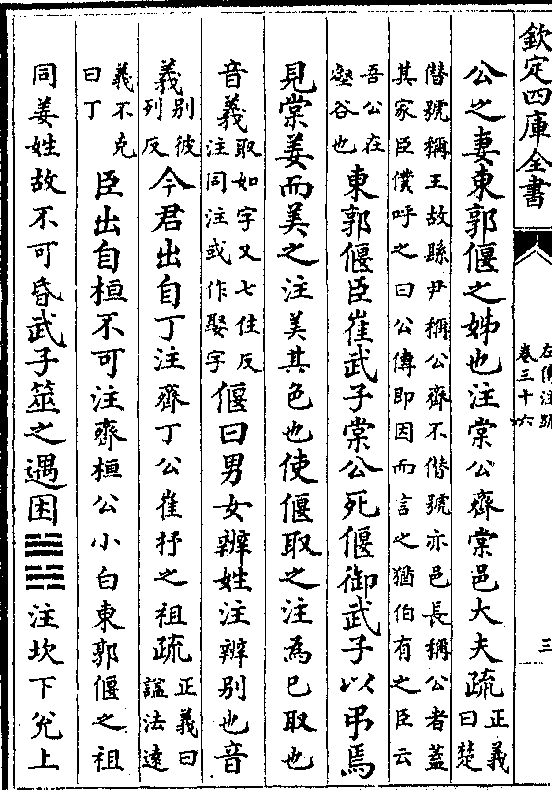 欽定四庫全書
左傳注疏
卷三十六
三
公之妻東郭偃之姊也注棠公齊棠邑大夫疏正義曰楚
僭號稱王故縣尹稱公齊不僭號亦邑長稱公者蓋
其家臣僕呼之曰公傳即因而言之猶伯有之臣云
吾公在壑谷也東郭偃臣崔武子棠公死偃御武子以弔焉
見棠姜而美之注美其色也使偃取之注為己取也
音義取如字又七住反注同注或作娶字偃曰男女辨姓注辨别也音
義别彼列反今君出自丁注齊丁公崔杼之祖疏正義曰諡法述
義不克曰丁臣出自桓不可注齊桓公小白東郭偃之祖
同姜姓故不可昏武子筮之遇困䷮䷛注坎下兌上